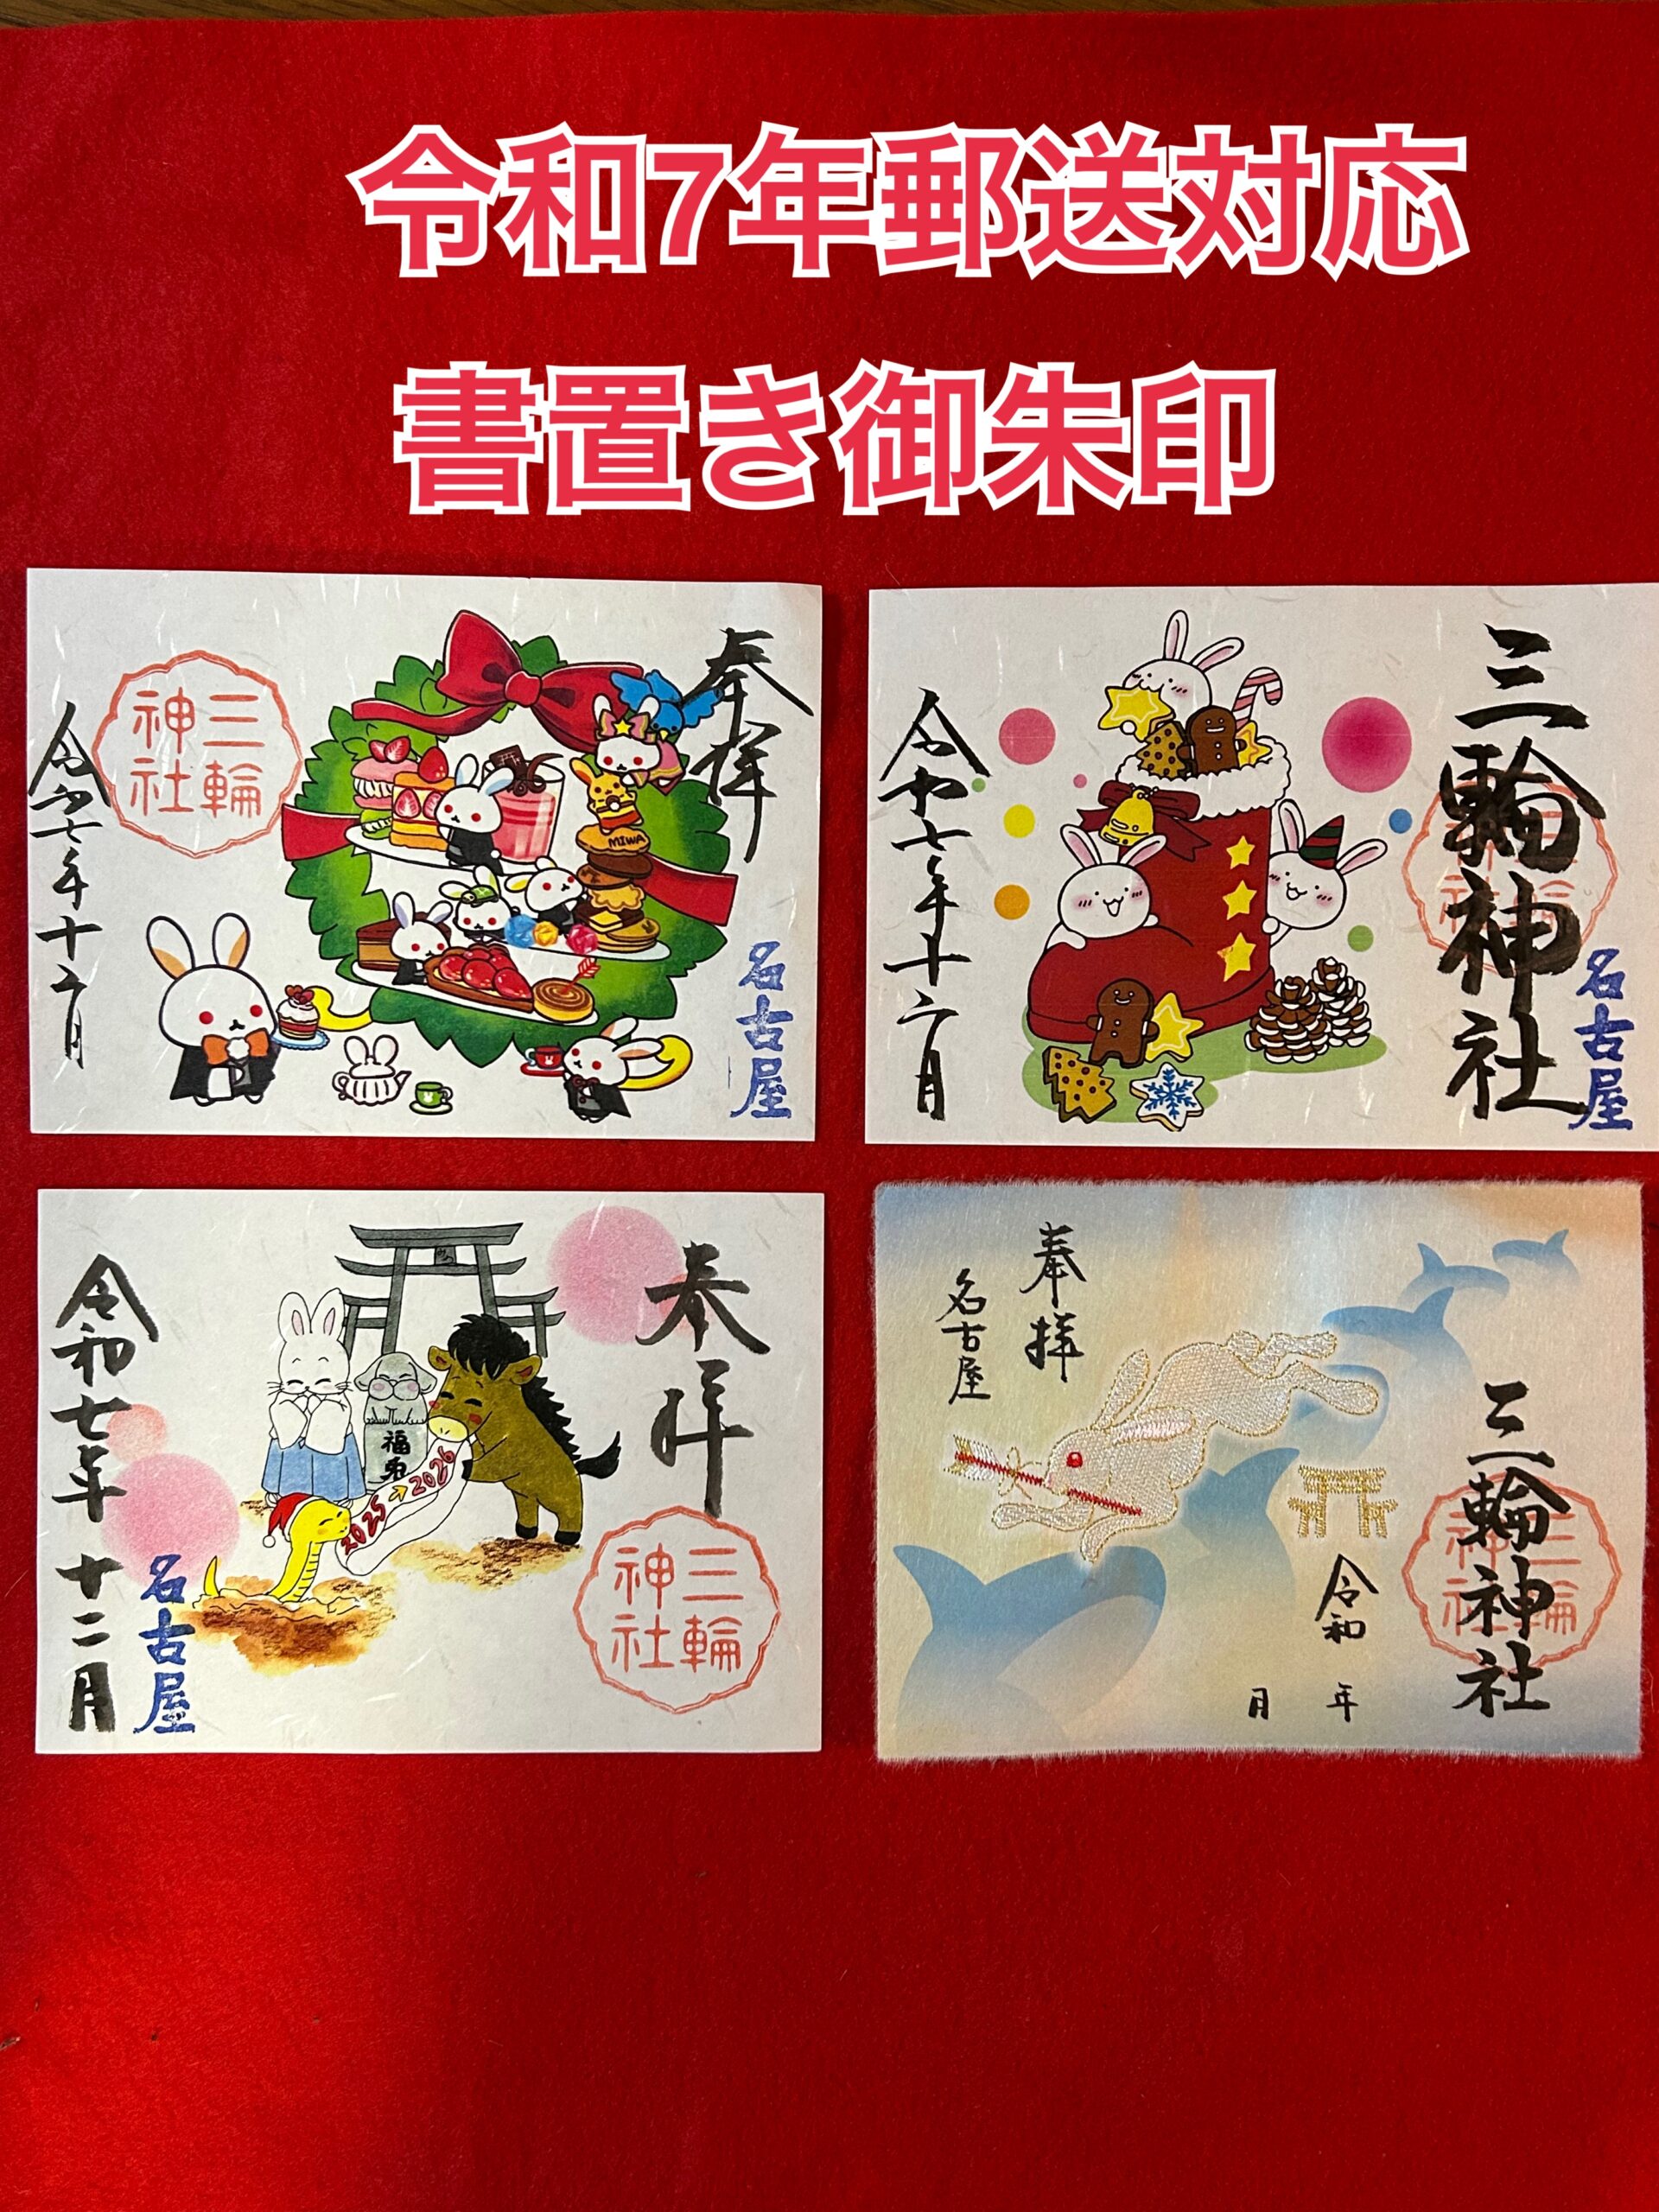 令和7年郵送対応
書置き御朱印
奉拝
名古屋
MIWA
三輪
神社
令和七年十二月
三輪神社
名古屋
三輪
神社
令和七年十二月
奉拝
三輪
神社
福兎
2025→2026
名古屋
令和七年十二月
奉拝
名古屋
三輪神社
三輪
神社
令和
年
月